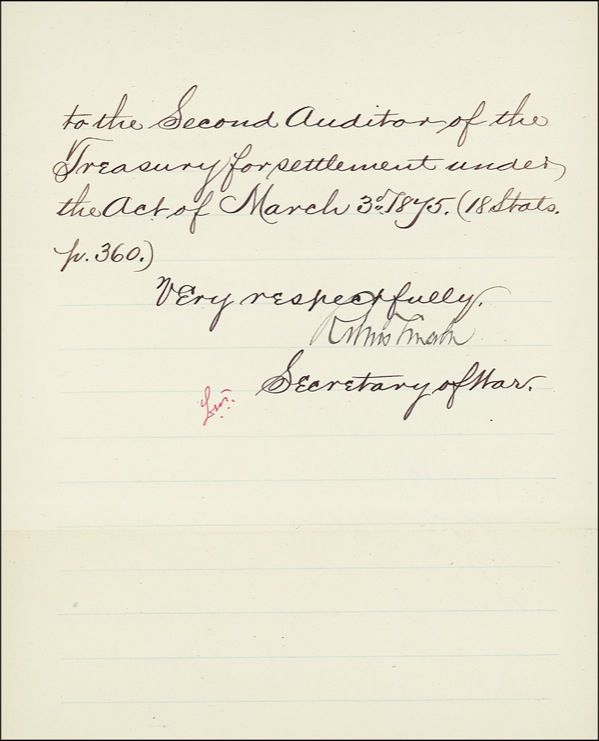 to the Second Auditor of the
Treasury for settlement under
the Act of March 3d. 1875. (18 Stats.
p. 360.)
Very respectfully.
Secretary of War.